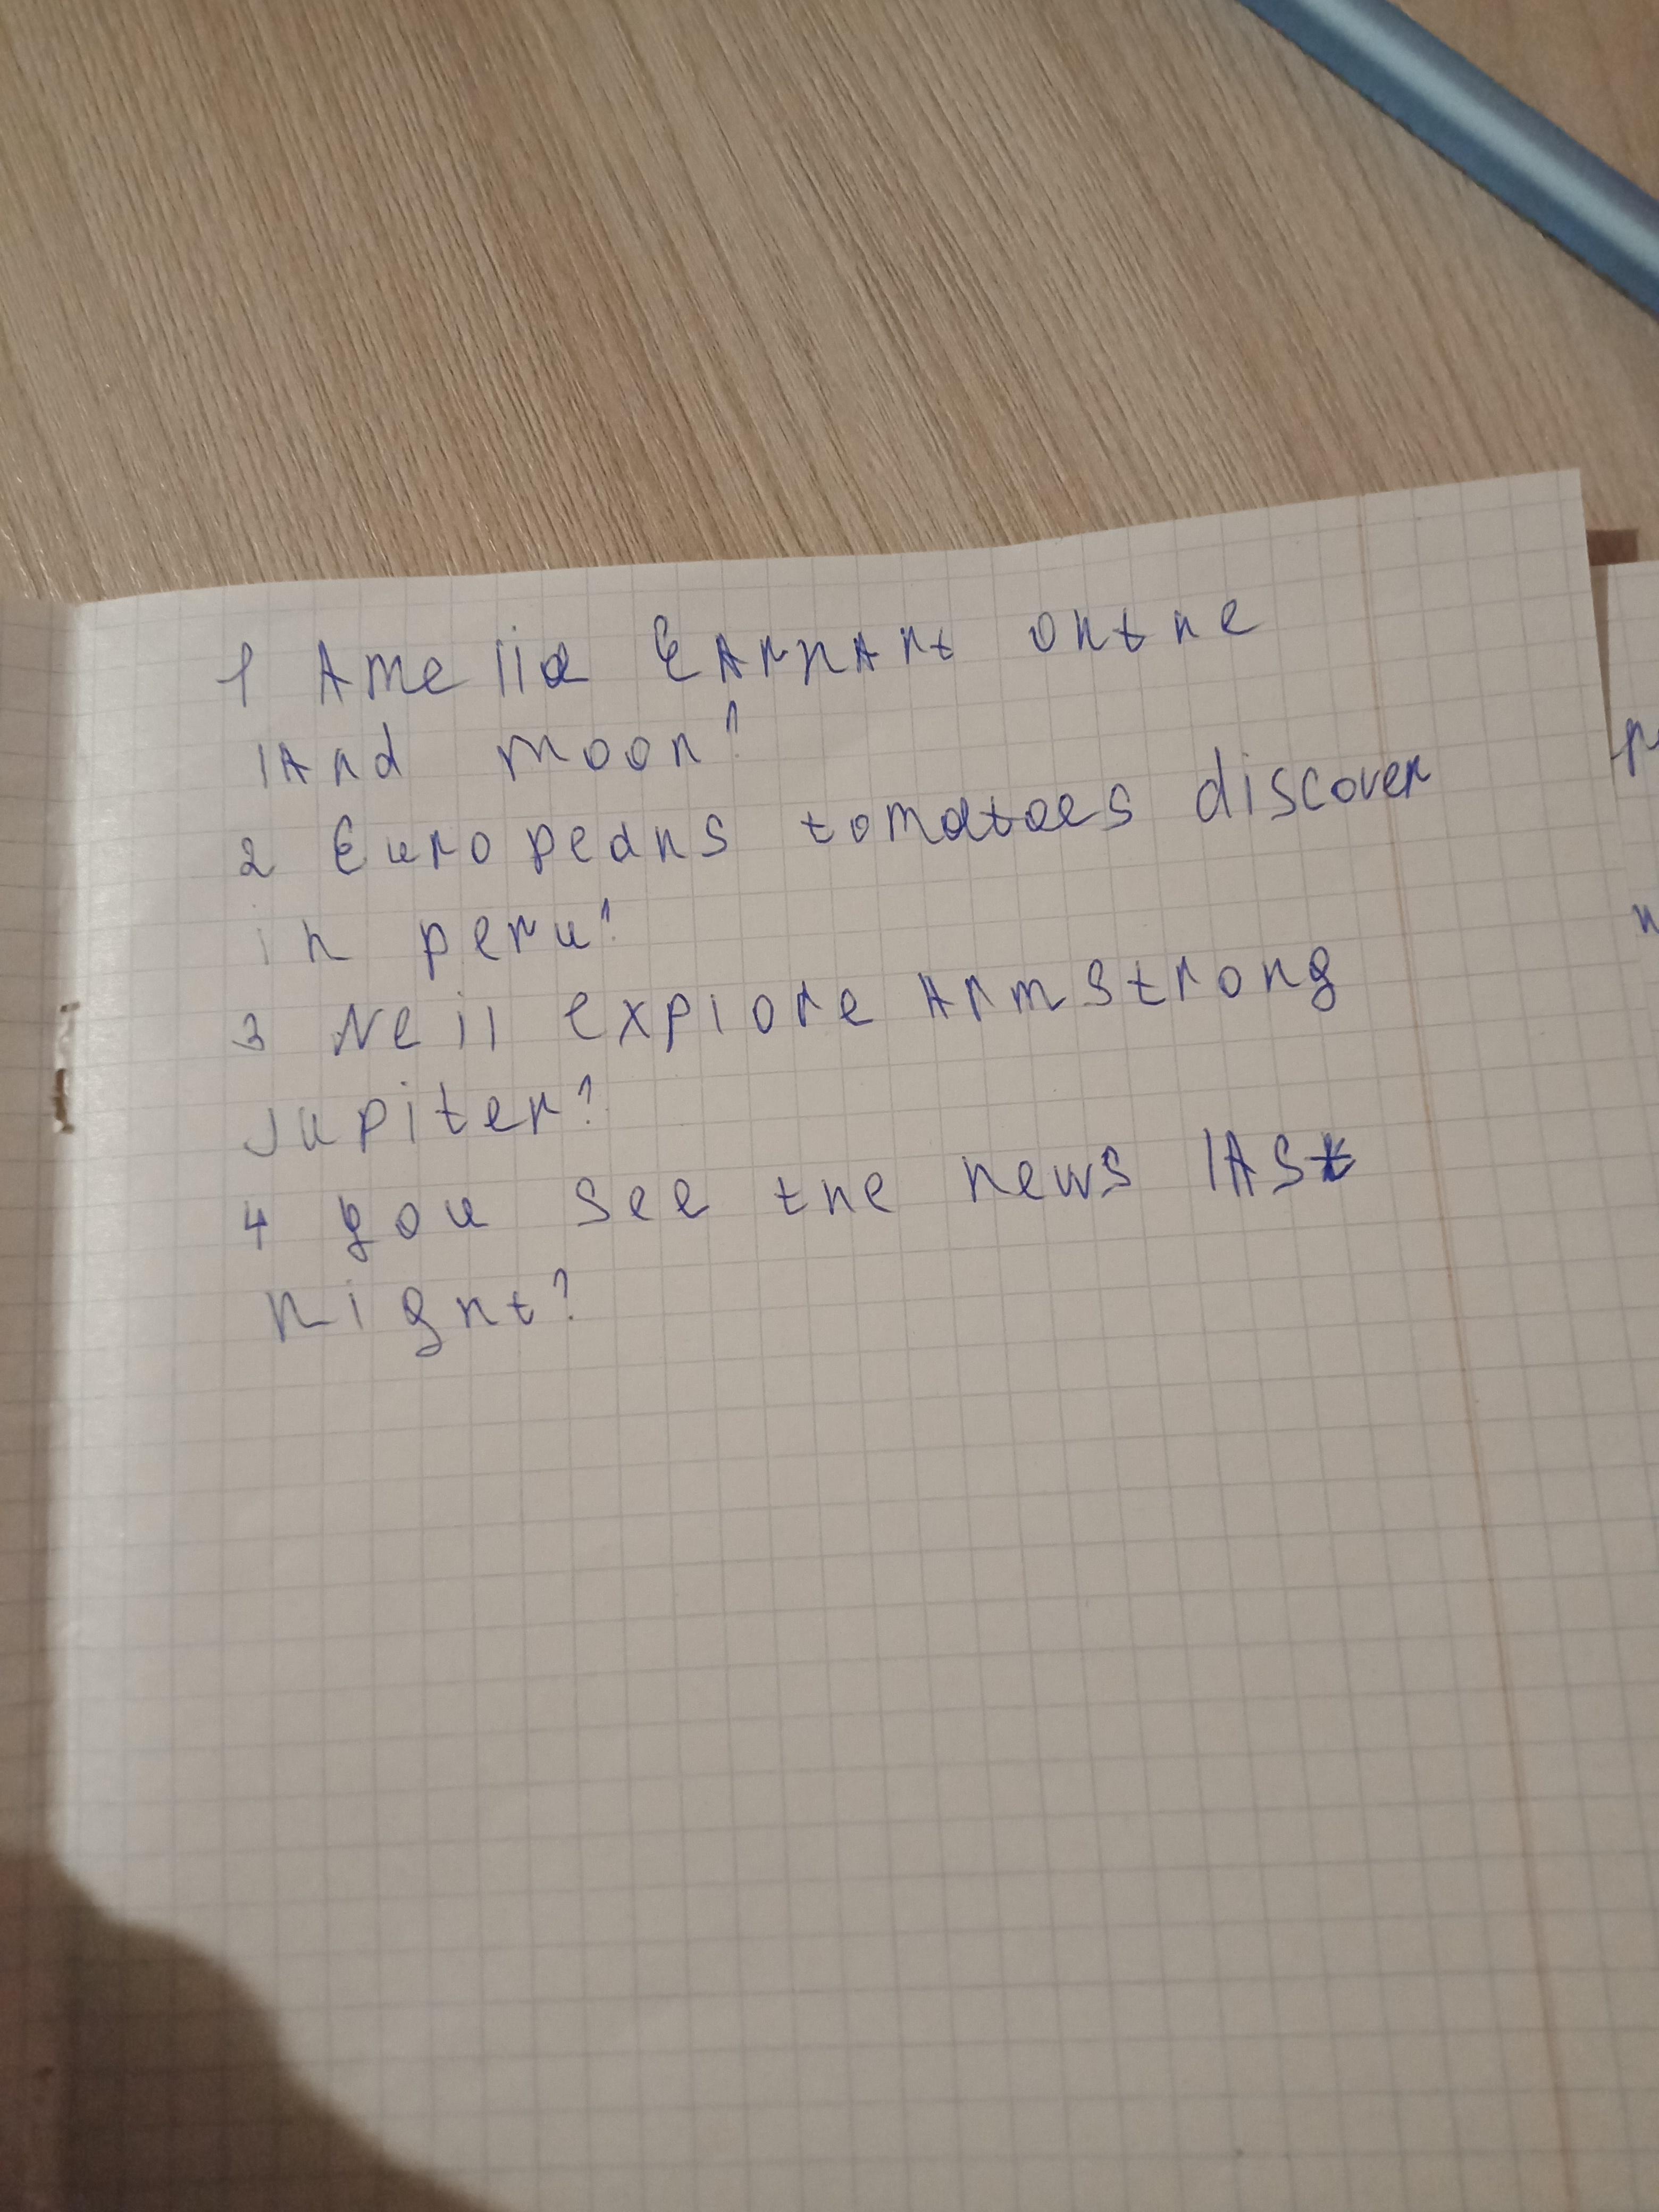 1 Amelia Earhart on the
land moon?
2 Europeans tomatoes discover
in peru?
3 Neil explore Armstrong
Jupiter?
4 you see the news last
night?